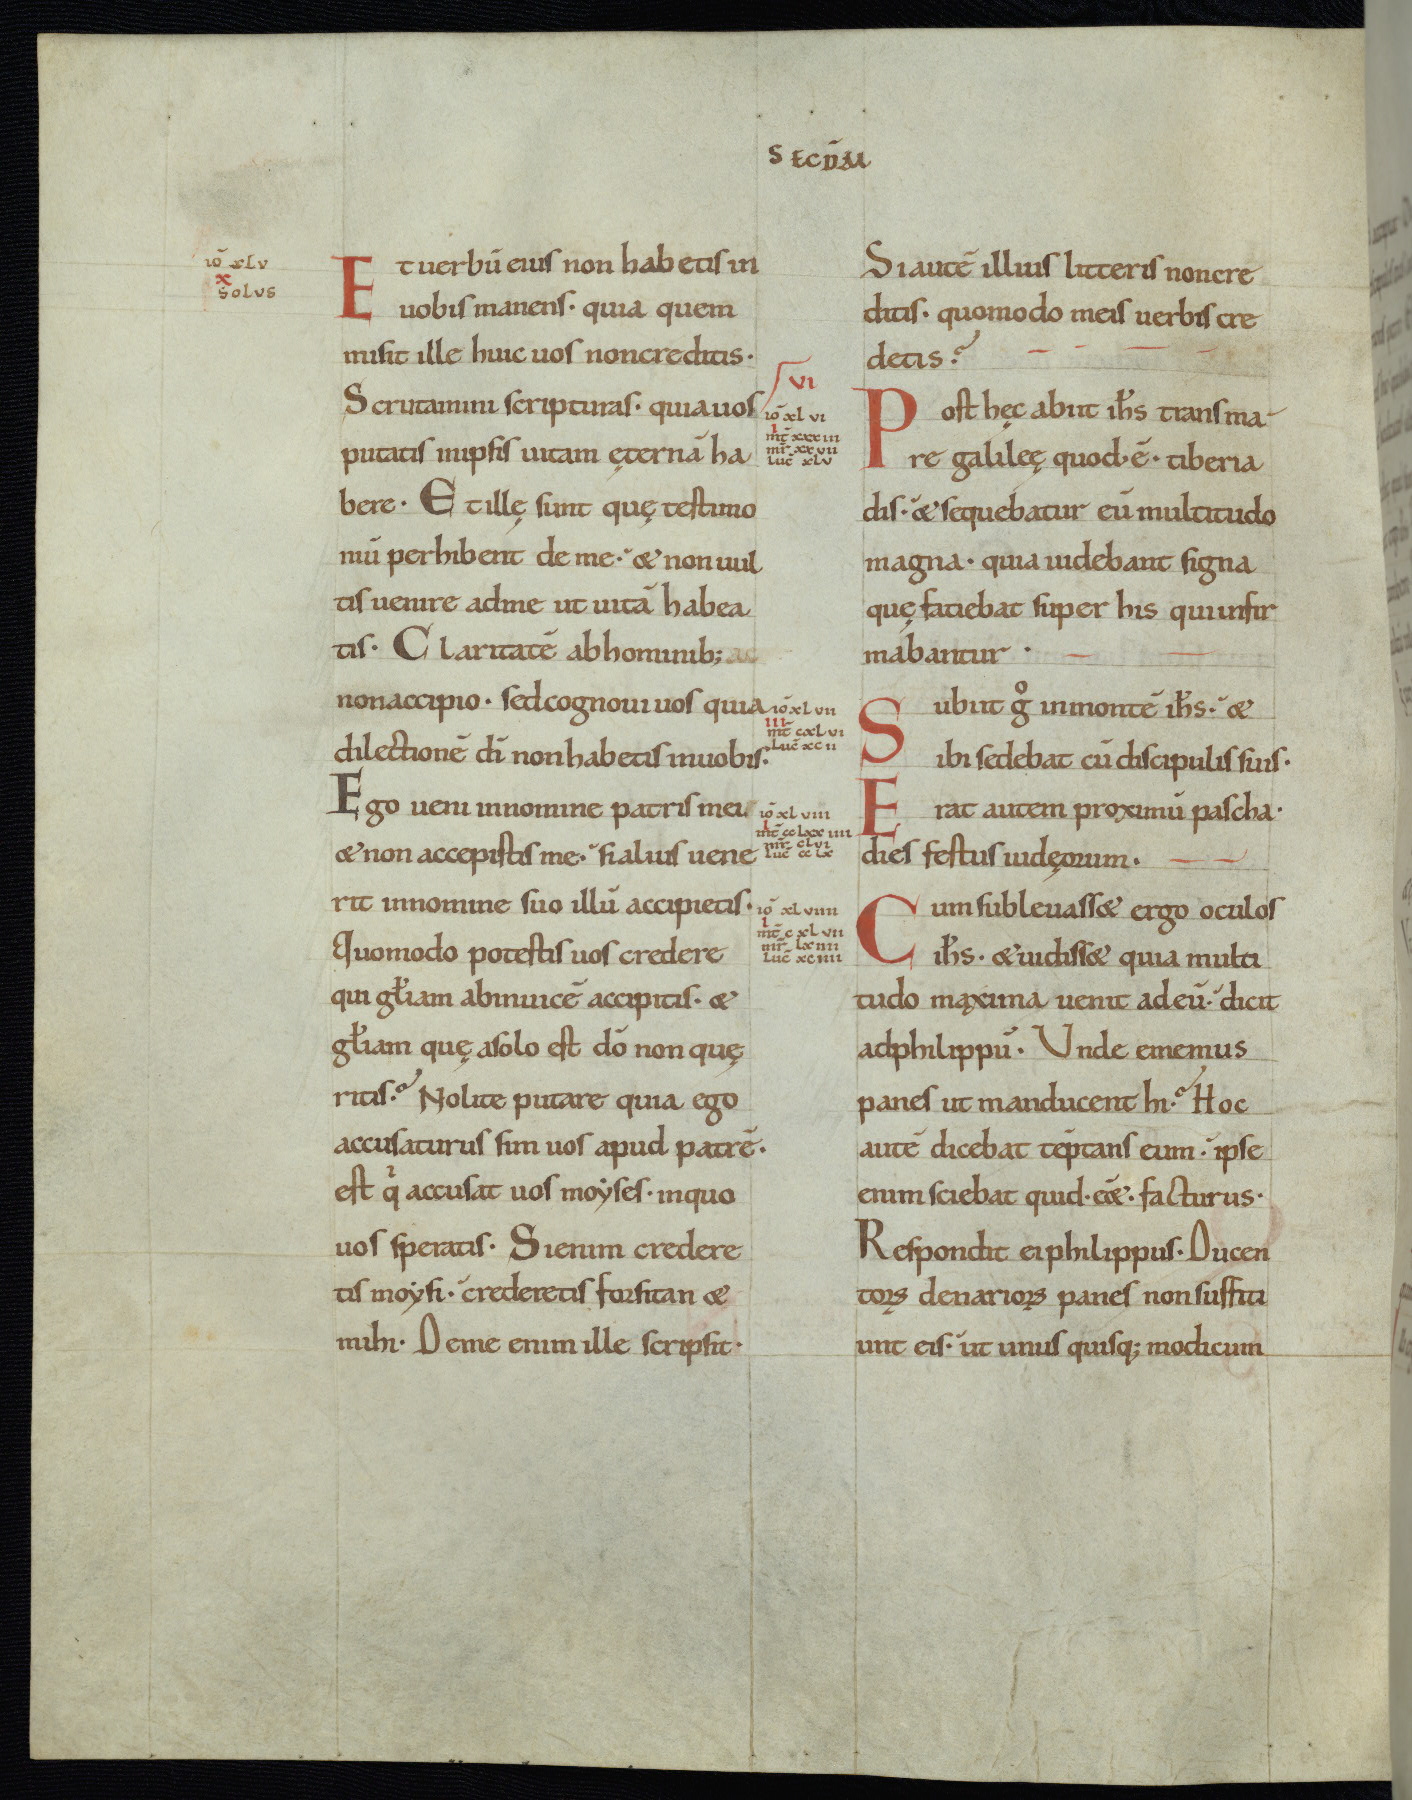 SECŪDŪ
iō xlv
x
Solus
Et uerbū eius non habetis in
uobis manens· quia quem
misit ille huic uos non creditis·
Scrutamini scripturas· quia uos
putatis in ipsis uitam ęternā ha
bere· Et illę sunt quę testimo
niū perhibent de me· & non uul
tis uenire ad me ut uitā habea
tis· Claritatē ab hominib;
non accipio· sed cognoui uos quia
dilectionē dī non habetis in uobis·
Ego ueni in nomine patris mei
& non accepistis me· si alius uene
rit in nomine suo illū accipietis·
Quomodo potestis uos credere
qui głiam ab inuicē accipitis· &
głiam quę a solo est dō non quę
ritis? Nolite putare quia ego
accusaturus sim uos apud patrē·
est q̇ accusat uos moẏses· in quo
uos speratis· Si enim credere
tis moẏsi· crederetis forsitan &
mihi· De me enim ille scripsit·
VI
iō xlvi
I
mt̄ xxxiii
mr̄ xxvii
luc̄ xlv
iō xlvii
III
mt̄ cxlvi
luc̄ xcii
iō xlviii
I
mt̄ cclxxiiii
mr̄ clvi
luc̄ cclx
iō xlviiii
I
mt̄ cxlvii
mr̄ lxiiii
luc̄ xciiii
Si autē illius litteris non cre
ditis· quomodo meis uerbis cre
detis?
Post hęc abiit ihs̄ trans ma
re galileę quod·ē· tiberia
dis· & sequebatur eū multitudo
magna· quia uidebant signa
quę faciebat super his qui infir
mabantur·
Subiit gͦ in montē ihs̄· &
ibi sedebat cū discipulis suis·
Erat autem proximū pascha·
dies festus iudęorum·
Cum subleuass& ergo oculos
ihs̄· & uidiss& quia multi
tudo maxima uenit ad eū· dicit
ad philippū· Unde ememus
panes ut manducent hi? Hoc
autē dicebat tēptans eum· ipse
enim sciebat quid·eēt· facturus·
Respondit ei philippus· Ducen
toꝝ denarioꝝ panes non suffici
unt eis· ut unus quisq; modicum